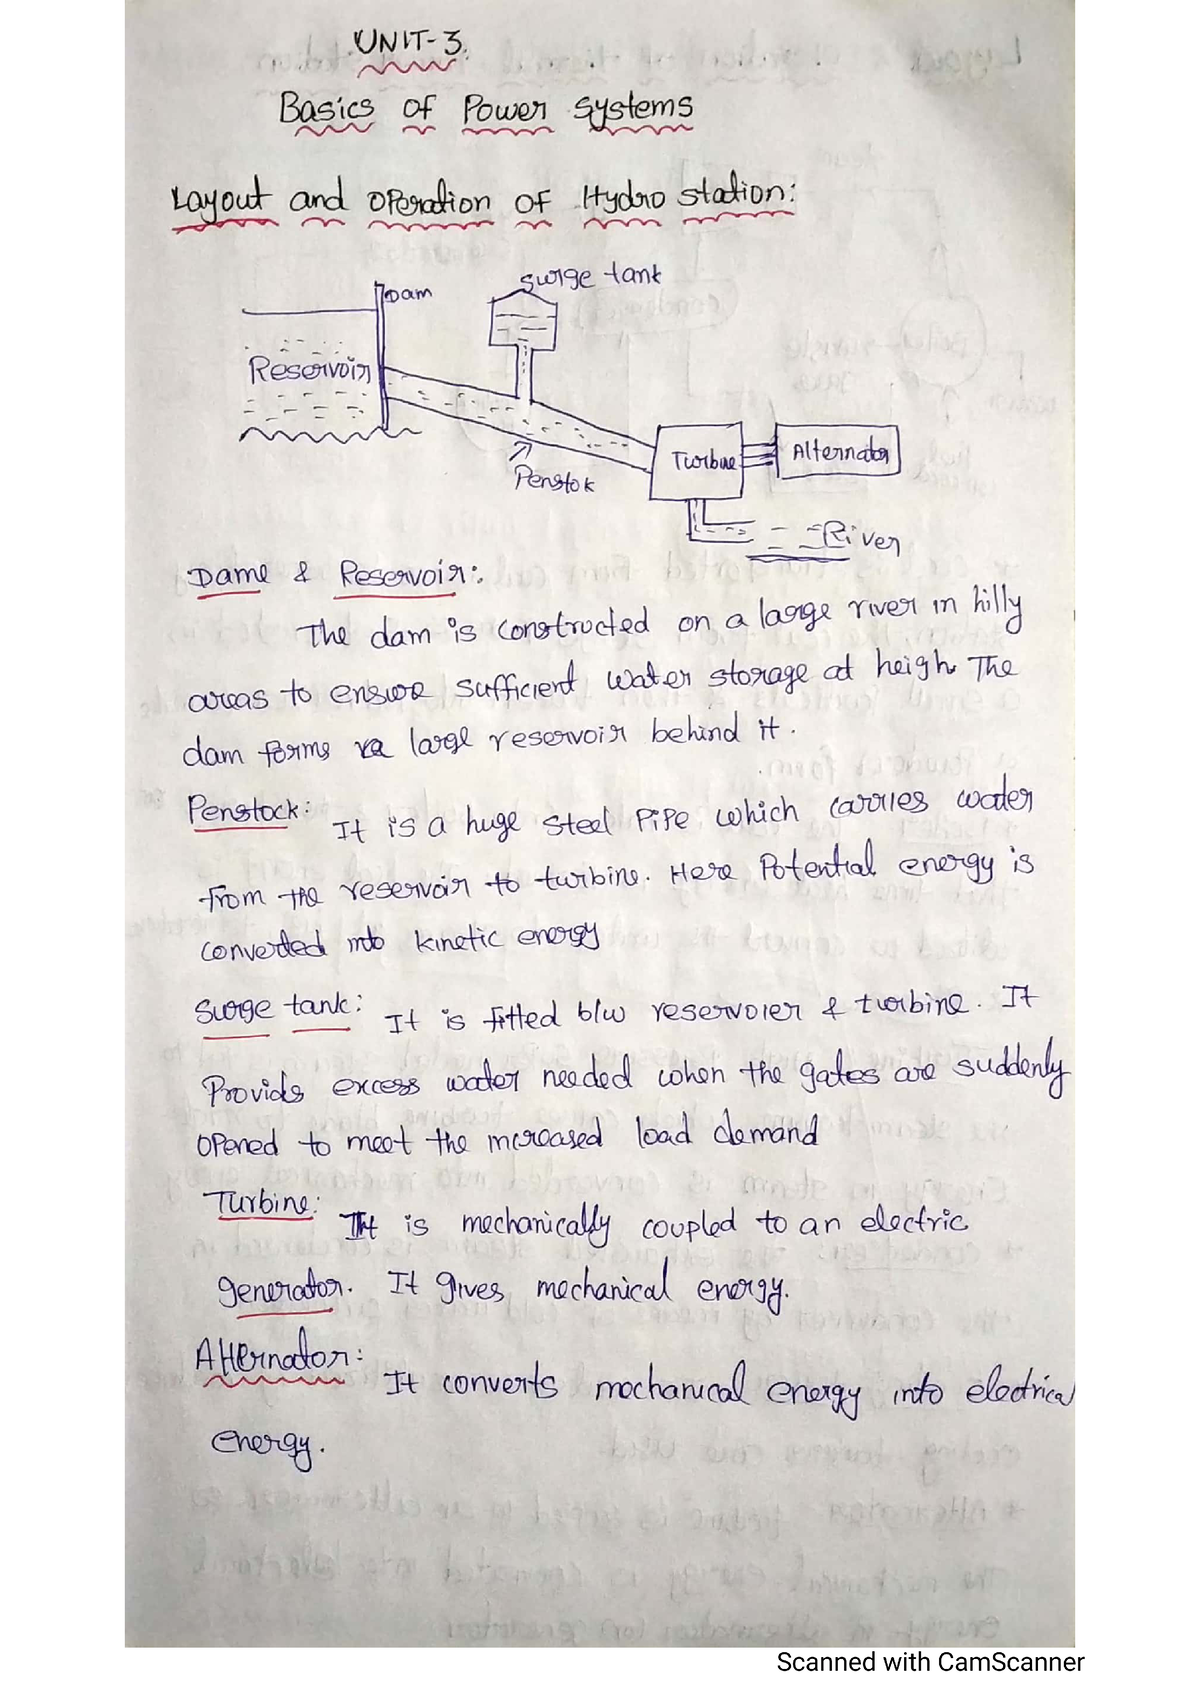 UNIT-3.
Basics of Power Systems
Layout and operation of Hydro station:
Surge tank
Dam
Reservoir
Turbine
Alternator
Penstok
River
Dame & Reservoir:
The dam is constructed on a large river in hilly
areas to ensure sufficient water storage at heigh. The
dam forms a large reservoir behind it.
Penstock: It is a huge steel pipe which carries water
from the reservoir to turbine. Here Potential energy is
converted into kinetic energy
Surge tank: It is fitted b/w reservoier & turbine. It
Provids excess water needed when the gates are suddenly
opened to meet the increased load demand
Turbine: It is mechanically coupled to an electric
generator. It gives mechanical energy.
Alternator: It converts mechanical energy into electrical
energy.
Scanned with CamScanner